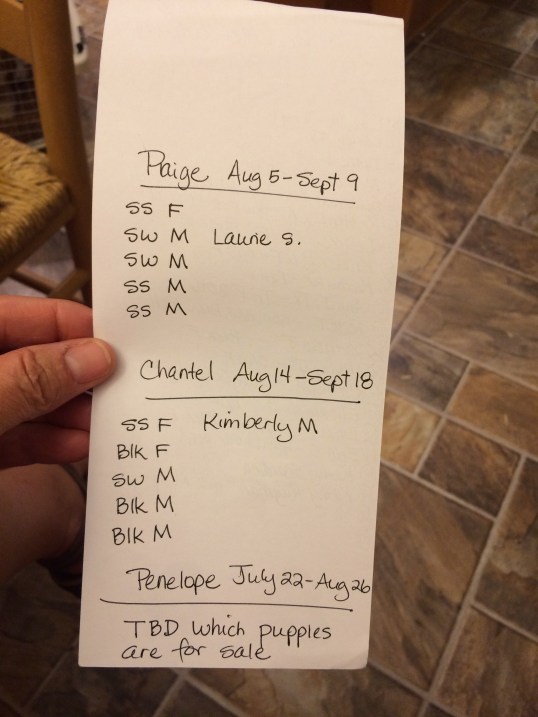 Paige Aug 5-Sept 9
SS F
SW M Laurie S.
SW M
SS M
SS M
Chantel Aug 14-Sept 18
SS F Kimberly M
Blk F
SW M
Blk M
Blk M
Penelope July 22-Aug 26
TBD which puppies
are for sale